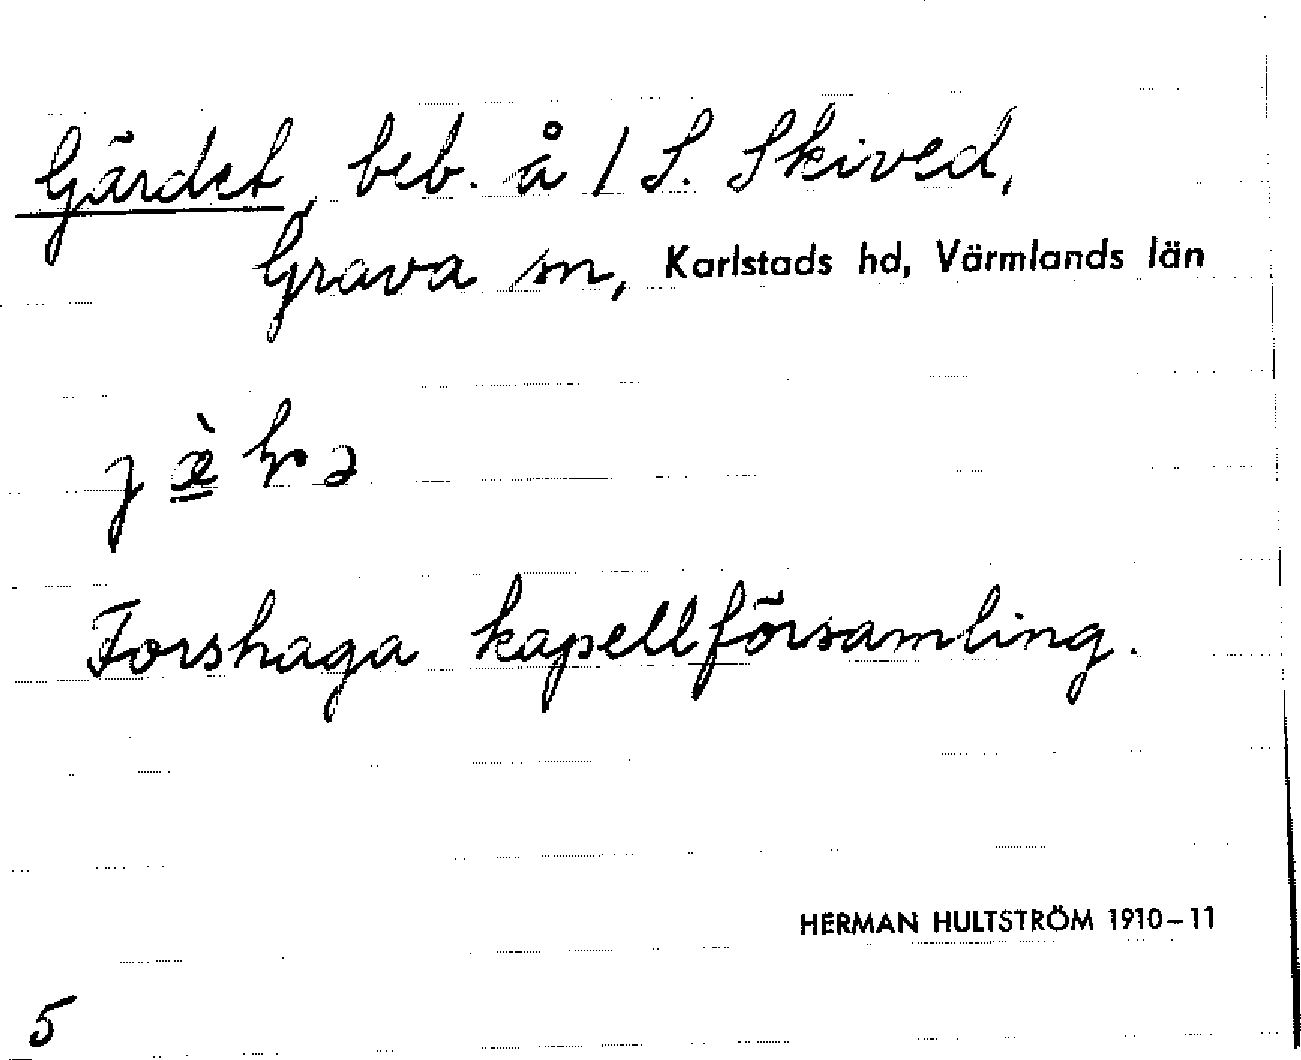 Gärdet, beb. å 1 S. Skived,
Grava sn, Karlstads hd, Värmlands län
Forshaga kapellförsamling.
HERMAN HULTSTRÖM 1910-11
5